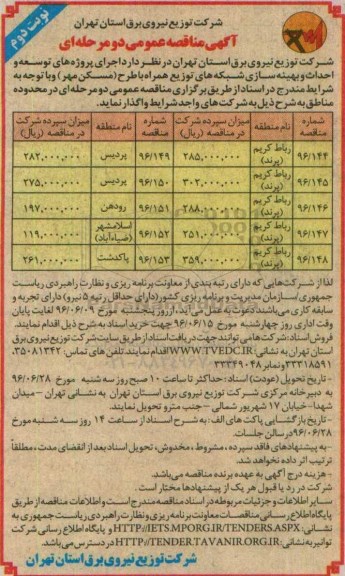 شرکت توزیع نیروی برق استان تهران
نوبت دوم
آگهی مناقصه عمومی دو مرحله‌ای
شرکت توزیع نیروی برق استان تهران در نظر دارد اجرای پروژه‌های توسعه و
احداث و بهینه سازی شبکه‌های توزیع همراه با طرح (مسکن مهر) و با توجه به
شرایط مندرج در اسناد از طریق برگزاری مناقصه عمومی دو مرحله‌ای در محدوده
مناطق به شرح ذیل به شرکت‌های واجد شرایط واگذار نماید.
شماره مناقصه نام منطقه میزان سپرده شرکت در مناقصه (ریال) شماره مناقصه نام منطقه میزان سپرده شرکت در مناقصه (ریال)
۹۶/۱۴۴ رباط کریم (پرند) ۲۸۵,۰۰۰,۰۰۰ ۹۶/۱۴۹ پردیس ۲۸۲,۰۰۰,۰۰۰
۹۶/۱۴۵ رباط کریم (پرند) ۳۰۲,۰۰۰,۰۰۰ ۹۶/۱۵۰ پردیس ۲۷۵,۰۰۰,۰۰۰
۹۶/۱۴۶ رباط کریم (پرند) ۲۸۸,۰۰۰,۰۰۰ ۹۶/۱۵۱ رودهن ۱۹۷,۰۰۰,۰۰۰
۹۶/۱۴۷ رباط کریم (پرند) ۲۵۱,۰۰۰,۰۰۰ ۹۶/۱۵۲ اسلامشهر (ضیاءآباد) ۱۱۹,۰۰۰,۰۰۰
۹۶/۱۴۸ رباط کریم (پرند) ۳۵۹,۰۰۰,۰۰۰ ۹۶/۱۵۳ پاکدشت ۲۶۱,۰۰۰,۰۰۰
لذا از شرکت‌هایی که دارای رتبه بندی از معاونت برنامه ریزی و نظارت راهبردی ریاست
جمهوری/سازمان مدیریت و برنامه ریزی کشور (دارای حداقل رتبه ۵ نیرو) دارای تجربه و
سابقه کاری می‌باشند دعوت به عمل می‌آید، از روز پنجشنبه مورخ ۹۶/۰۶/۰۹ لغایت پایان
وقت اداری روز چهارشنبه مورخ ۹۶/۰۶/۱۵ جهت خرید اسناد به شرح ذیل اقدام نمایند.
فروش اسناد: شرکت‌ها می‌توانند جهت دریافت اسناد از طریق سایت شرکت توزیع نیروی برق
استان تهران به نشانی: WWW.TVEDC.IR اقدام نمایند. تلفن های تماس: ۳۵۰۸۱۳۴۲،
۳۳۳۱۸۵۹۱ و نمابر ۳۳۳۴۹۰۴۸
- تاریخ تحویل (عودت) اسناد: حداکثر تا ساعت ۱۰ صبح روز سه شنبه مورخ ۹۶/۰۶/۲۸
به دبیرخانه مرکزی شرکت توزیع نیروی برق استان تهران به نشانی تهران - میدان
شهدا - خیابان ۱۷ شهریور شمالی - جنب مترو تحویل نمایند.
- تاریخ بازگشایی پاکت های الف: به شرح اسناد از ساعت ۱۴ روز سه شنبه مورخ
۹۶/۰۶/۲۸ در سالن جلسات.
- به پیشنهادهای فاقد سپرده، مشروط، مخدوش، تحویل اسناد بعد از انقضای مدت، مطلقاً
ترتیب اثر داده نخواهد شد.
- هزینه درج آگهی به عهده برنده مناقصه می‌باشد.
شرکت در رد یا قبول هر یک از پیشنهادها مختار است
سایر اطلاعات و جزئیات مربوطه در اسناد مناقصه مندرج است و اطلاعات مناقصه از طریق
پایگاه اطلاع رسانی مناقصات معاونت برنامه ریزی و نظارت راهبردی ریاست جمهوری به
نشانی: HTTP://IETS.MPORG.IR/TENDERS.ASPX و پایگاه اطلاع رسانی شرکت
توانیر به نشانی: HTTP://TENDER.TAVANIR.ORG.IR در دسترس می‌باشد.
شرکت توزیع نیروی برق استان تهران